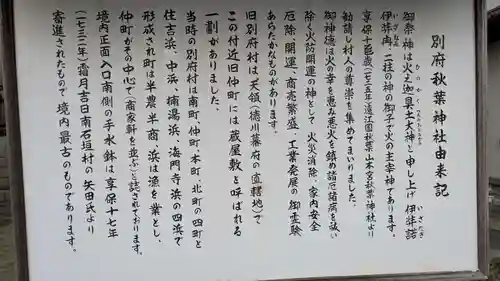 別府秋葉神社由来記
御祭神は火之迦具土大神と申し上げ伊弉諾
伊弉冉二柱の神の御子で火の主宰神であります。
享保十巳歳(一七二五年)遠江国秋葉山本宮秋葉神社より
勧請し村人の尊崇を集めてまいりました。
御神徳は火の幸を恵み悪火を鎮め諸厄諸病を祓い
除く火防開運の神として 火災消除、家内安全
厄除、開運、商売繁盛、工業発展の御霊験
あらたかなものがあります。
旧別府村は天領(徳川幕府の直轄地)で
この付近旧仲町には蔵屋敷と呼ばれる
一劃がありました。
当時の別府村は南町、仲町、本町、北町の四町と
住吉浜、中浜、楠湯浜、海門寺浜の四浜で
形成され町は半農半商、浜は漁を業とし、
仲町がその中心で「商家軒を並ぶ」と誌されております。
境内正面入口南側の手水鉢は享保十七年
(一七三二年)霜月吉日南石垣村の矢田氏より
寄進されたもので 境内最古のものであります。